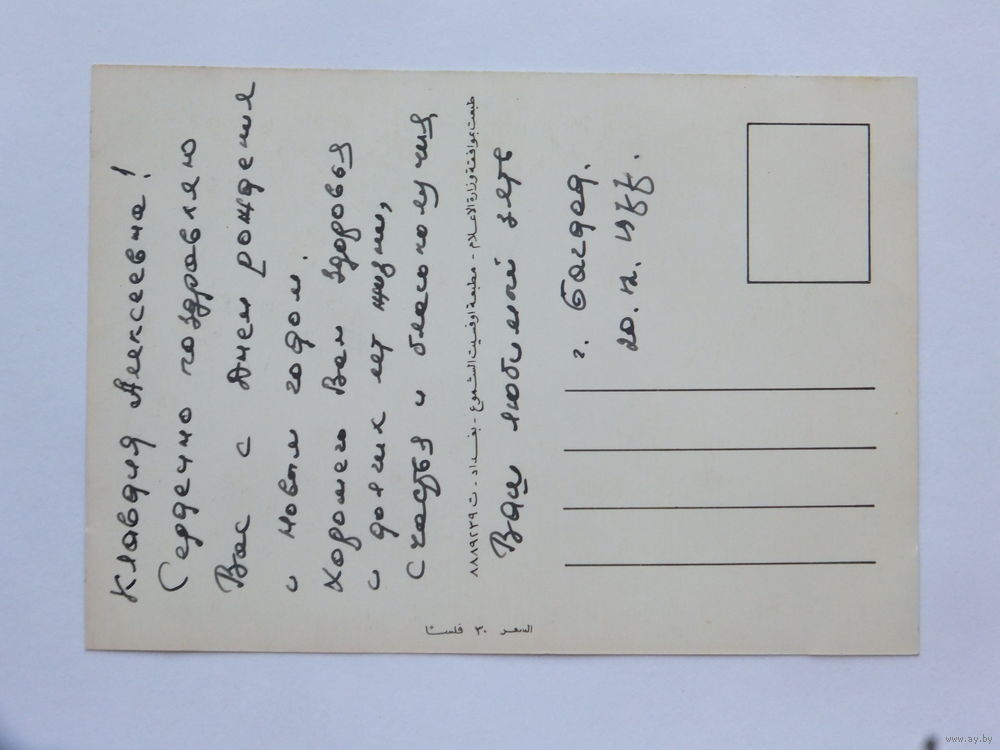 Клавдия Алексеевна!
Сердечно поздравляю
Вас с Днем рождения
и новым годом.
Хорошего Вам здоровья
и долгих лет жизни,
счастья и благополучия
Ваш любимый зять
г. Багдад.
طبعت بموافقة وزارة الاعلام - مطبعة اوفسيت الشموع - بغداد - ت ٨٨٨٩٢٣٩
السعر ٣٠ فلسا
www.ay.by